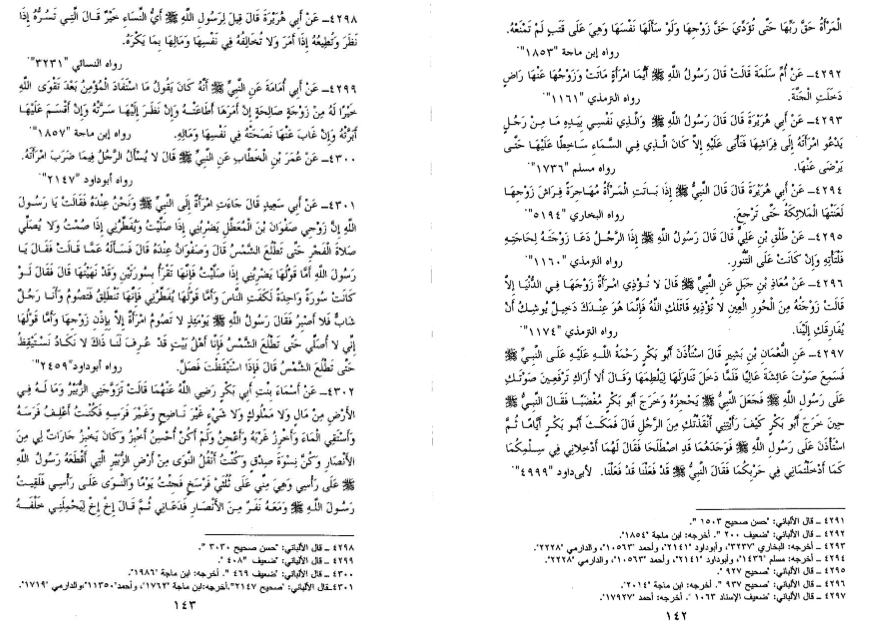 المَرْأَةُ حَقَّ رَبِّهَا حَتَّى تُؤَدِّيَ حَقَّ زَوْجِهَا وَلَوْ سَأَلَهَا نَفْسَهَا وَهِيَ عَلَى قَتَبٍ لَمْ تَمْنَعْهُ.
رواه إبن ماجة "١٨٥٣".
٤٢٩٢ـ عَنْ أُمِّ سَلَمَةَ قَالَتْ قَالَ رَسُولُ اللَّهِ ﷺ أَيُّمَا امْرَأَةٍ مَاتَتْ وَزَوْجُهَا عَنْهَا رَاضٍ
دَخَلَتِ الْجَنَّةَ. رواه الترمذي "١١٦١".
٤٢٩٣ـ عَنْ أَبِي هُرَيْرَةَ قَالَ قَالَ رَسُولُ اللَّهِ ﷺ وَالَّذِي نَفْسِي بِيَدِهِ مَا مِنْ رَجُلٍ
يَدْعُو امْرَأَتَهُ إِلَى فِرَاشِهَا فَتَأْبَى عَلَيْهِ إِلاَّ كَانَ الَّذِي فِي السَّمَاءِ سَاخِطًا عَلَيْهَا حَتَّى
يَرْضَى عَنْهَا. رواه مسلم "١٧٣٦".
٤٢٩٤ـ عَنْ أَبِي هُرَيْرَةَ قَالَ قَالَ النَّبِيُّ ﷺ إِذَا بَاتَتِ الْمَرْأَةُ مُهَاجِرَةً فِرَاشَ زَوْجِهَا
لَعَنَتْهَا الْمَلَائِكَةُ حَتَّى تَرْجِعَ. رواه البخاري "٥١٩٤".
٤٢٩٥ـ عَنْ طَلْقِ بْنِ عَلِيٍّ قَالَ قَالَ رَسُولُ اللَّهِ ﷺ إِذَا الرَّجُلُ دَعَا زَوْجَتَهُ لِحَاجَتِهِ
فَلْتَأْتِهِ وَإِنْ كَانَتْ عَلَى التَّنُّورِ. رواه الترمذي "١١٦٠".
٤٢٩٦ـ عَنْ مُعَاذِ بْنِ جَبَلٍ عَنِ النَّبِيِّ ﷺ قَالَ لَا تُؤْذِي امْرَأَةٌ زَوْجَهَا فِي الدُّنْيَا إِلاَّ
قَالَتْ زَوْجَتُهُ مِنَ الْحُورِ الْعِينِ لَا تُؤْذِيهِ قَاتَلَكِ اللَّهُ فَإِنَّمَا هُوَ عِنْدَكِ دَخِيلٌ يُوشِكُ أَنْ
يُفَارِقَكِ إِلَيْنَا. رواه الترمذي "١١٧٤".
٤٢٩٧ـ عَنِ النُّعْمَانِ بْنِ بَشِيرٍ قَالَ اسْتَأْذَنَ أَبُو بَكْرٍ رَحْمَةُ اللَّهِ عَلَيْهِ عَلَى النَّبِيِّ ﷺ
فَسَمِعَ صَوْتَ عَائِشَةَ عَالِيًا فَلَمَّا دَخَلَ تَنَاوَلَهَا لِيَلْطِمَهَا وَقَالَ أَلاَ أَرَاكِ تَرْفَعِينَ صَوْتَكِ
عَلَى رَسُولِ اللَّهِ ﷺ فَجَعَلَ النَّبِيُّ ﷺ يَحْجِزُهُ وَخَرَجَ أَبُو بَكْرٍ مُغْضَبًا فَقَالَ النَّبِيُّ ﷺ
حِينَ خَرَجَ أَبُو بَكْرٍ كَيْفَ رَأَيْتِنِي أَنْقَذْتُكِ مِنَ الرَّجُلِ قَالَ فَمَكَثَ أَبُو بَكْرٍ أَيَّامًا ثُمَّ
اسْتَأْذَنَ عَلَى رَسُولِ اللَّهِ ﷺ فَوَجَدَهُمَا قَدِ اصْطَلَحَا فَقَالَ لَهُمَا أَدْخِلَانِي فِي سِلْمِكُمَا
كَمَا أَدْخَلْتُمَانِي فِي حَرْبِكُمَا فَقَالَ النَّبِيُّ ﷺ قَدْ فَعَلْنَا قَدْ فَعَلْنَا. لأبى داود "٤٩٩٩".
٤٢٩١ ـ قال الألباني: "حسن صحيح ١٥٠٣".
٤٢٩٢ ـ قال الألباني: "ضعيف ٢٠٠". أخرجه: ابن ماجة "١٨٥٤".
٤٢٩٣ ـ أخرجه: البخاري "٣٢٣٧"، وأبوداود "٢١٤١"، وأحمد "١٠٥٦٣"، والدارمي "٢٢٢٨".
٤٢٩٤ ـ أخرجه: مسلم "١٤٣٦"، وأبوداود "٢١٤١"، وأحمد "١٠٥٦٣"، والدارمي "٢٢٢٨".
٤٢٩٥ ـ قال الألباني: "صحيح ٩٢٧".
٤٢٩٦ ـ قال الألباني: "صحيح ٩٣٧". أخرجه: ابن ماجة "٢٠١٤".
٤٢٩٧ ـ قال الألباني: "ضعيف الإسناد ١٠٦٣". أخرجه: أحمد "١٧٩٢٧".
١٤٢
٤٢٩٨ـ عَنْ أَبِي هُرَيْرَةَ قَالَ قِيلَ لِرَسُولِ اللَّهِ ﷺ أَيُّ النِّسَاءِ خَيْرٌ قَالَ الَّتِي تَسُرُّهُ إِذَا
نَظَرَ وَتُطِيعُهُ إِذَا أَمَرَ وَلَا تُخَالِفُهُ فِي نَفْسِهَا وَمَالِهَا بِمَا يَكْرَهُ.
رواه النسائي "٣٢٣١".
٤٢٩٩ـ عَنْ أَبِي أُمَامَةَ عَنِ النَّبِيِّ ﷺ أَنَّهُ كَانَ يَقُولُ مَا اسْتَفَادَ الْمُؤْمِنُ بَعْدَ تَقْوَى اللَّهِ
خَيْرًا لَهُ مِنْ زَوْجَةٍ صَالِحَةٍ إِنْ أَمَرَهَا أَطَاعَتْهُ وَإِنْ نَظَرَ إِلَيْهَا سَرَّتْهُ وَإِنْ أَقْسَمَ عَلَيْهَا
أَبَرَّتْهُ وَإِنْ غَابَ عَنْهَا نَصَحَتْهُ فِي نَفْسِهَا وَمَالِهِ. رواه إبن ماجة "١٨٥٧".
٤٣٠٠ـ عَنْ عُمَرَ بْنِ الْخَطَّابِ عَنِ النَّبِيِّ ﷺ قَالَ لَا يُسْأَلُ الرَّجُلُ فِيمَا ضَرَبَ امْرَأَتَهُ.
رواه أبوداود "٢١٤٧".
٤٣٠١ـ عَنْ أَبِي سَعِيدٍ قَالَ جَاءَتِ امْرَأَةٌ إِلَى النَّبِيِّ ﷺ وَنَحْنُ عِنْدَهُ فَقَالَتْ يَا رَسُولَ
اللَّهِ إِنَّ زَوْجِي صَفْوَانَ بْنَ الْمُعَطَّلِ يَضْرِبُنِي إِذَا صَلَّيْتُ وَيُفَطِّرُنِي إِذَا صُمْتُ وَلَا يُصَلِّي
صَلَاةَ الْفَجْرِ حَتَّى تَطْلُعَ الشَّمْسُ قَالَ وَصَفْوَانُ عِنْدَهُ قَالَ فَسَأَلَهُ عَمَّا قَالَتْ فَقَالَ يَا
رَسُولَ اللَّهِ أَمَّا قَوْلُهَا يَضْرِبُنِي إِذَا صَلَّيْتُ فَإِنَّهَا تَقْرَأُ بِسُورَتَيْنِ وَقَدْ نَهَيْتُهَا قَالَ فَقَالَ لَوْ
كَانَتْ سُورَةً وَاحِدَةً لَكَفَتِ النَّاسَ وَأَمَّا قَوْلُهَا يُفَطِّرُنِي فَإِنَّهَا تَنْطَلِقُ فَتَصُومُ وَأَنَا رَجُلٌ
شَابٌّ فَلَا أَصْبِرُ فَقَالَ رَسُولُ اللَّهِ ﷺ يَوْمَئِذٍ لَا تَصُومُ امْرَأَةٌ إِلاَّ بِإِذْنِ زَوْجِهَا وَأَمَّا قَوْلُهَا
إِنِّي لَا أُصَلِّي حَتَّى تَطْلُعَ الشَّمْسُ فَإِنَّا أَهْلُ بَيْتٍ قَدْ عُرِفَ لَنَا ذَاكَ لَا نَكَادُ نَسْتَيْقِظُ
حَتَّى تَطْلُعَ الشَّمْسُ قَالَ فَإِذَا اسْتَيْقَظْتَ فَصَلِّ. رواه أبوداود "٢٤٥٩".
٤٣٠٢ـ عَنْ أَسْمَاءَ بِنْتِ أَبِي بَكْرٍ رَضِيَ اللَّهُ عَنْهُمَا قَالَتْ تَزَوَّجَنِي الزُّبَيْرُ وَمَا لَهُ فِي
الْأَرْضِ مِنْ مَالٍ وَلَا مَمْلُوكٍ وَلَا شَيْءٍ غَيْرَ نَاضِحٍ وَغَيْرَ فَرَسِهِ فَكُنْتُ أَعْلِفُ فَرَسَهُ
وَأَسْتَقِي الْمَاءَ وَأَخْرِزُ غَرْبَهُ وَأَعْجِنُ وَلَمْ أَكُنْ أُحْسِنُ أَخْبِزُ وَكَانَ يَخْبِزُ جَارَاتٌ لِي مِنَ
الْأَنْصَارِ وَكُنَّ نِسْوَةَ صِدْقٍ وَكُنْتُ أَنْقُلُ النَّوَى مِنْ أَرْضِ الزُّبَيْرِ الَّتِي أَقْطَعَهُ رَسُولُ اللَّهِ
ﷺ عَلَى رَأْسِي وَهِيَ مِنِّي عَلَى ثُلُثَيْ فَرْسَخٍ فَجِئْتُ يَوْمًا وَالنَّوَى عَلَى رَأْسِي فَلَقِيتُ
رَسُولَ اللَّهِ ﷺ وَمَعَهُ نَفَرٌ مِنَ الْأَنْصَارِ فَدَعَانِي ثُمَّ قَالَ إِخْ إِخْ لِيَحْمِلَنِي خَلْفَهُ
٤٢٩٨ ـ قال الألباني: "حسن صحيح ٣٠٣٠".
٤٢٩٩ ـ قال الألباني: "ضعيف ٤٠٨".
٤٣٠٠ ـ قال الألباني: "ضعيف ٤٦٩". أخرجه: ابن ماجة "١٩٨٦".
٤٣٠١ـ قال الألباني: "صحيح ٢١٤٧". أخرجه: ابن ماجة "١٧٦٢"، وأحمد "١١٣٥٠"، والدارمي "١٧١٩".
١٤٣